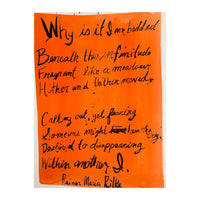 Why is it I am bedded
Beneath this infinitude
Fragrant like a meadow,
Hither and thither moved.
Calling out, yet fearing
Someone might hear the
Destined to disappearing
Within another I.
Rainer Maria Rilke